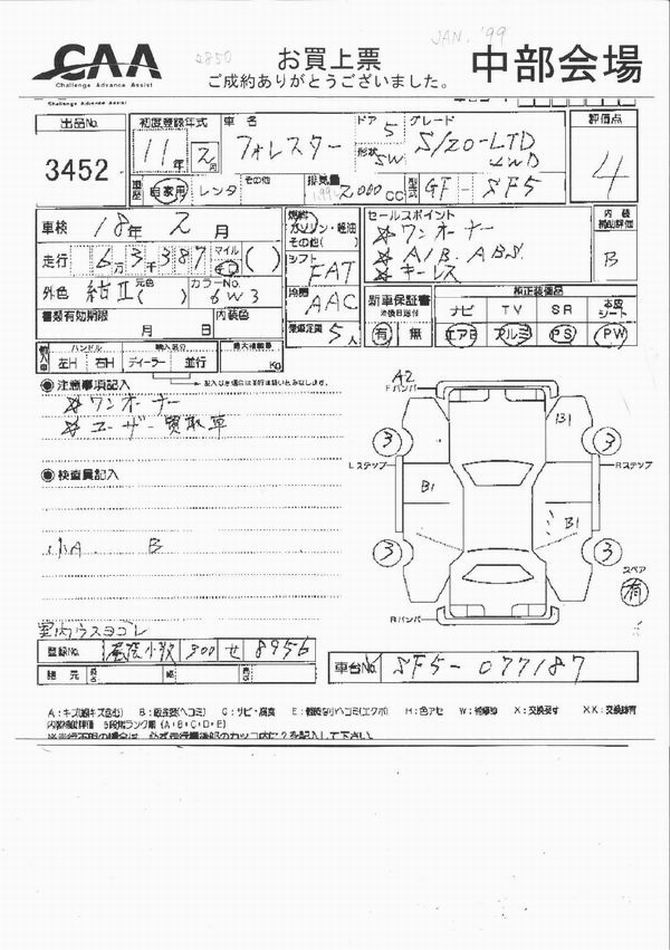 JAN. '99
CAA
Challenge Advance Assist
お買上票
ご成約ありがとうございました。
中部会場
Challenge Advance Assist
出品No.
3452
初度登録年式
11年
車名
フォレスター
ドア 5
形状 SW
グレード
S/20-LTD
4WD
評価点
4
自家用 レンタ その他
排気量
2000CC
型式 GF-SF5
車検 18年 2月
走行 6万3千387 マイル キロ ( )
外色 紺II 元色( ) カラーNo. 6W3
書類有効期限 月 日
内装色
燃料
ガソリン・軽油
その他( )
シフト FAT
冷房 AAC
乗車定員 5人
セールスポイント
☆ワンオーナー
☆A/B. ABS.
☆キーレス
内装
補助評価
B
新車保証書
有 無
純正装備品
ナビ TV SR 本皮シート
エアB アルミ PS PW
輸入車
ハンドル
左H 右H
ディーラー 並行
最大積載量
Kg
◉注意事項記入
☆ワンオーナー
☆ユーザー買取車
◉検査員記入
小A. B
室内ウスヨゴレ
A2
Fバンパ
B1
3
3
Lステップ
Rステップ
B1
B1
3
3
スペア
有
Rバンパ
登録No.
300 せ 8956
諸元
車台No.
SF5-077187
A:キズ(線キズ含む) B:板金跡(ヘコミ) C:サビ・腐食 E:軽微な小ヘコミ(エクボ) H:色アセ W:補修跡 X:交換要す XX:交換跡有
内装補助評価 5段階ランク制 (A・B・C・D・E)